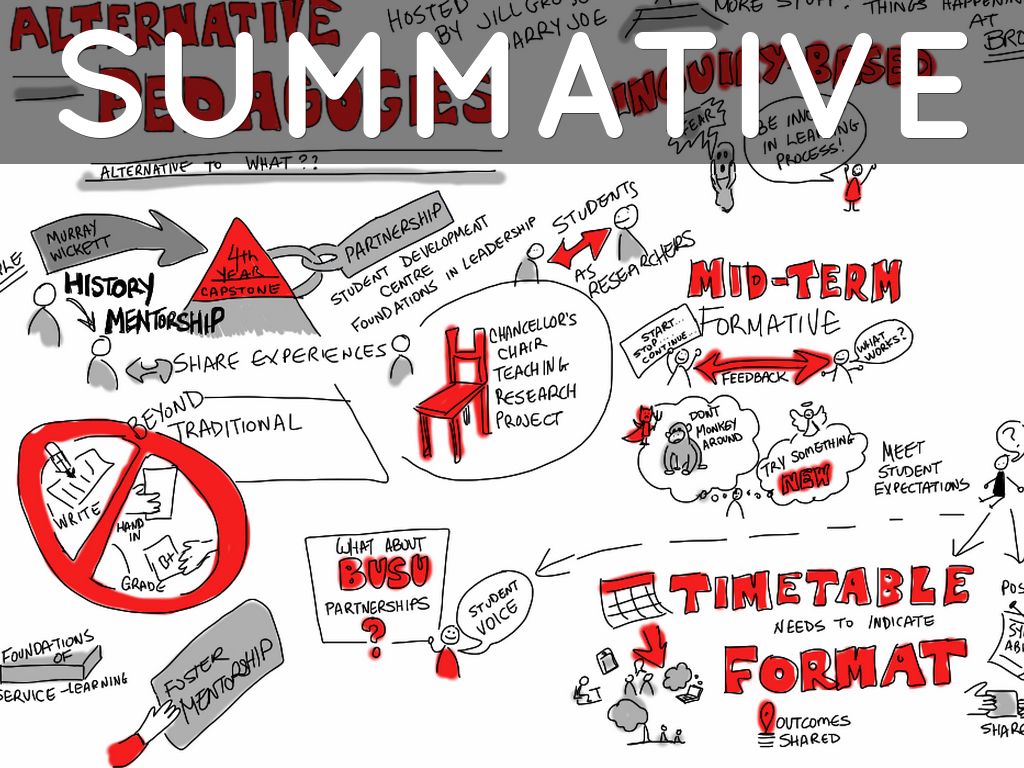 SUMMATIVE
ALTERNATIVE
PEDAGOGIES
HOSTED
BY JILL
JOE
MORE STUFF. THINGS HAPPENING
AT
INQUIRY-BASED
ALTERNATIVE TO WHAT??
FEAR
IN LEARNING
PROCESS!
MURRAY
WICKETT
4th
YEAR
CAPSTONE
PARTNERSHIP
STUDENT DEVELOPMENT
CENTRE
FOUNDATIONS IN LEADERSHIP
STUDENTS
AS
RESEARCHERS
HISTORY
MENTORSHIP
SHARE EXPERIENCES
CHANCELLOR'S
CHAIR
TEACHING
RESEARCH
PROJECT
MID-TERM
FORMATIVE
START...
STOP...
CONTINUE...
FEEDBACK
WHAT
WORKS?
DONT
MONKEY
AROUND
TRY SOMETHING
NEW
MEET
STUDENT
EXPECTATIONS
?
BEYOND
TRADITIONAL
WRITE
HAND
IN
GRADE
WHAT ABOUT
BUSU
PARTNERSHIPS
?
STUDENT
VOICE
TIMETABLE
NEEDS TO INDICATE
FORMAT
OUTCOMES
SHARED
FOUNDATIONS
OF
SERVICE-LEARNING
FOSTER
MENTORSHIP
SHARE